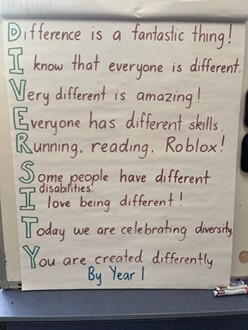 Difference is a fantastic thing!
I know that everyone is different.
Very different is amazing!
Everyone has different skills
Running, reading, Roblox!
Some people have different
disabilities.
I love being different!
Today we are celebrating diversity
You are created differently
By Year 1